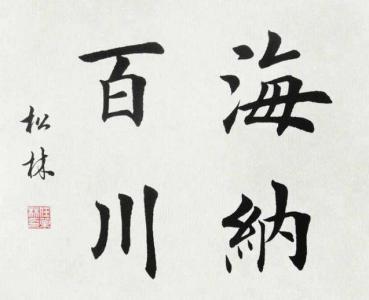 海納
百川
松林